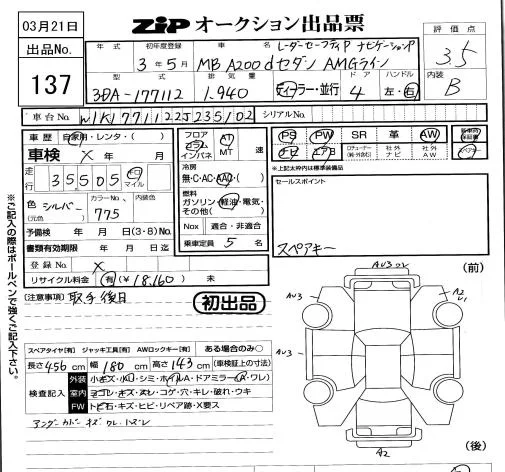 03月21日
ZIP オークション出品票
出品No.
137
年式 初年度登録 車名
3年5月 MB A200dセダン AMGライン
レーダーセーフティP ナビゲーションP
型式 排気量 ドア ハンドル
3DA-177112 1.940 ディーラー・並行 4 左・右
評価点
3.5
内装
B
車台No. W1K1771122J235102 シリアルNo.
車歴 自家用・レンタ・( )
車検 × 年 月
走行 35505 キロ マイル
色 シルバー (元色) カラーNo. 775 内装色
予備検 年 月 日(3・8)No.
書類有効期限 年 月 日迄
登録No. ×
リサイクル料金 有(¥18,160) 未
フロア コラム インパネ AT MT 速
冷房
無・C・AC・AAC( )
燃料
ガソリン・軽油・電気・その他( )
Nox 適合・非適合
乗車定員 5 名
PS PW SR 革 AW
エアB 社外ナビ 社外AW
※上記太枠内は標準装備品
セールスポイント
スペアキー
[注意事項] 取手後日
初出品
スペアタイヤ[有] ジャッキ工具[有] AWロックキー[有] ある場合のみ○
長さ456cm 幅180cm 高さ143cm (車検証上の寸法)
検査記入
外装 小キズ・小凹・シミ・ホイルA・ドアミラー(A・ワレ)
室内 ヨゴレ・キズ・スレ・コゲ・穴・キレ・破れ・ウキ
FW トビ石・キズ・ヒビ・リペア跡・X要ス
アンダーカバー キズ ワレ ハズレ
※ご記入の際はボールペンで強くご記入下さい。
(前)
AU3
A2
U1
AU3
A2
(後)